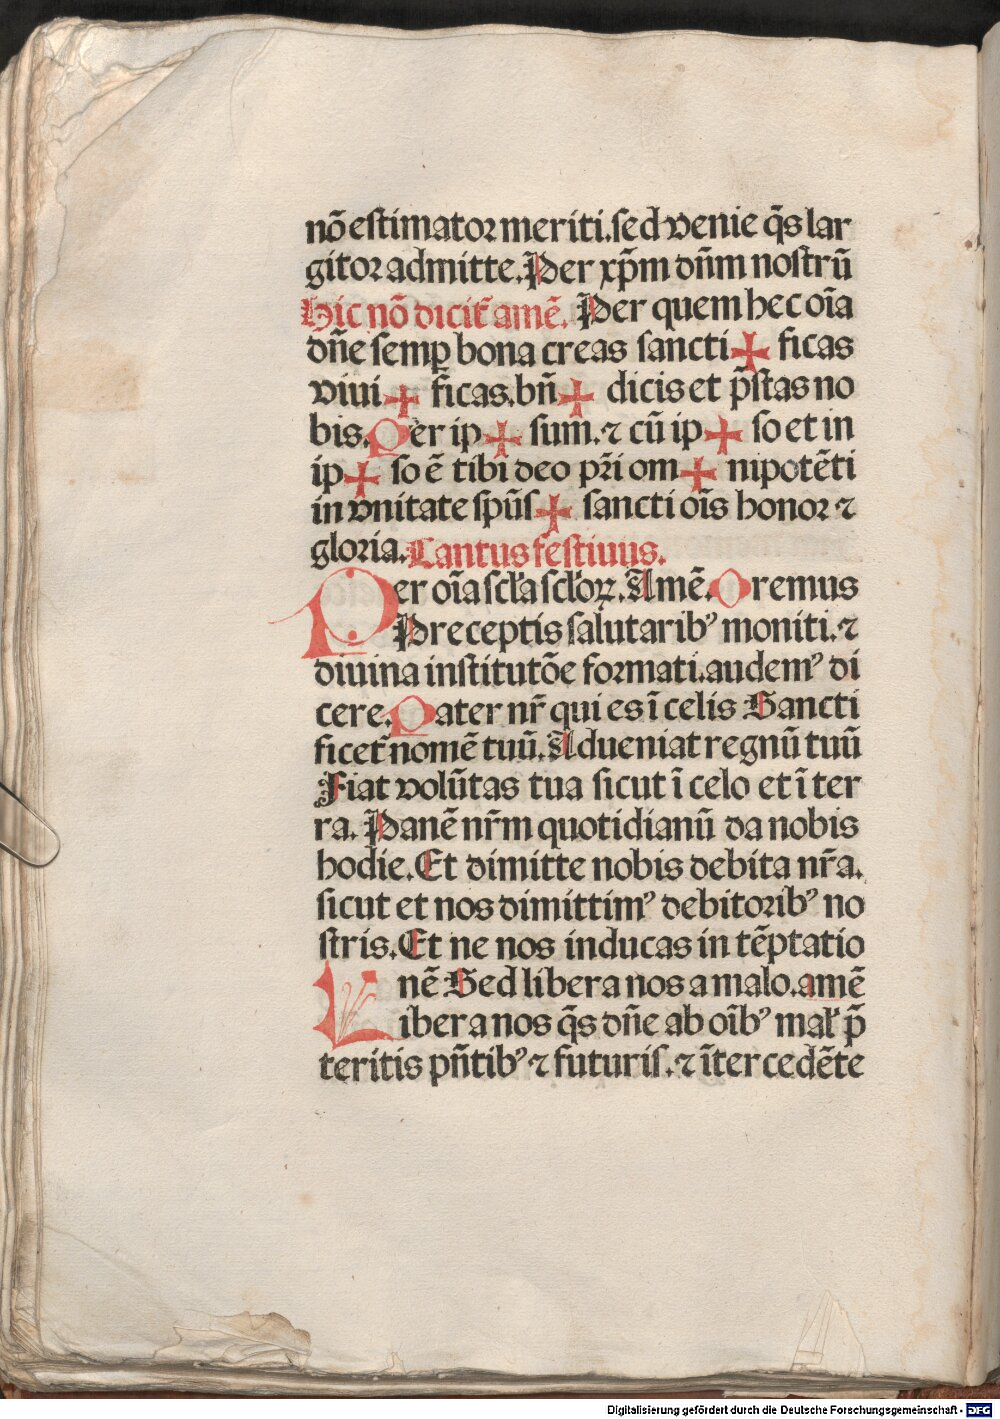 nō estimator meriti. sed venie q̄s lar
gitor admitte. Per xp̄m dn̄m nostrū
Hic nō dicit᷑ amē. Per quem hec oīa
dn̄e semꝑ bona creas sancti ✚ ficas
viui ✚ ficas. bn̄ ✚ dicis et p̄stas no
bis. Per ip ✚ sum. ⁊ cū ip ✚ so et in
ip ✚ so ē tibi deo pr̄i om ✚ nipotēti
in vnitate spūs ✚ sancti oīs honor ⁊
gloria. Cantus festiuus.
Per oīa scl̄a scl̄oꝝ. Amē. Oremus
Preceptis salutaribꝰ moniti. ⁊
diuina institutōe formati. audemꝰ di
cere. Pater nr̄ qui es ī celis Sancti
ficet᷑ nomē tuū. Adueniat regnū tuū
Fiat volūtas tua sicut ī celo et ī ter
ra. Panē nr̄m quotidianū da nobis
hodie. Et dimitte nobis debita nr̄a.
sicut et nos dimittimꝰ debitoribꝰ no
stris. Et ne nos inducas in tēptatio
nē Sed libera nos a malo. amē
Libera nos q̄s dn̄e ab oībꝰ mal̄ p̄
teritis pn̄tibꝰ ⁊ futuris. ⁊ īntercedēte
Digitalisierung gefördert durch die Deutsche Forschungsgemeinschaft - DFG